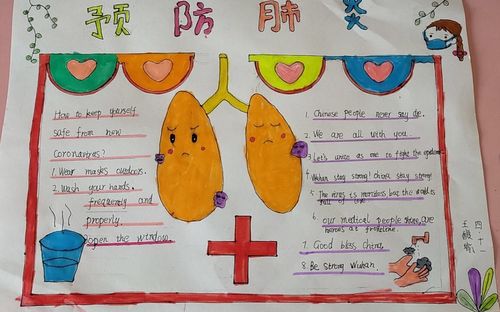 预防肺炎
How to keep yourself
safe from new
Coronavirus?
1 Wear masks outdoors.
2. Wash your hands.
frequently and
properly.
3open the window.
1. Chinese people never say die.
2. We are all with you.
3 Let's unite as one to fight the
4 Wuhan stay strong China stay strong
5 The virus is merciless but the world is
full of love
6. our medical people are
heroes at frontline.
7. Good bless China,
8. Be strong Wuhan.
四十二
王